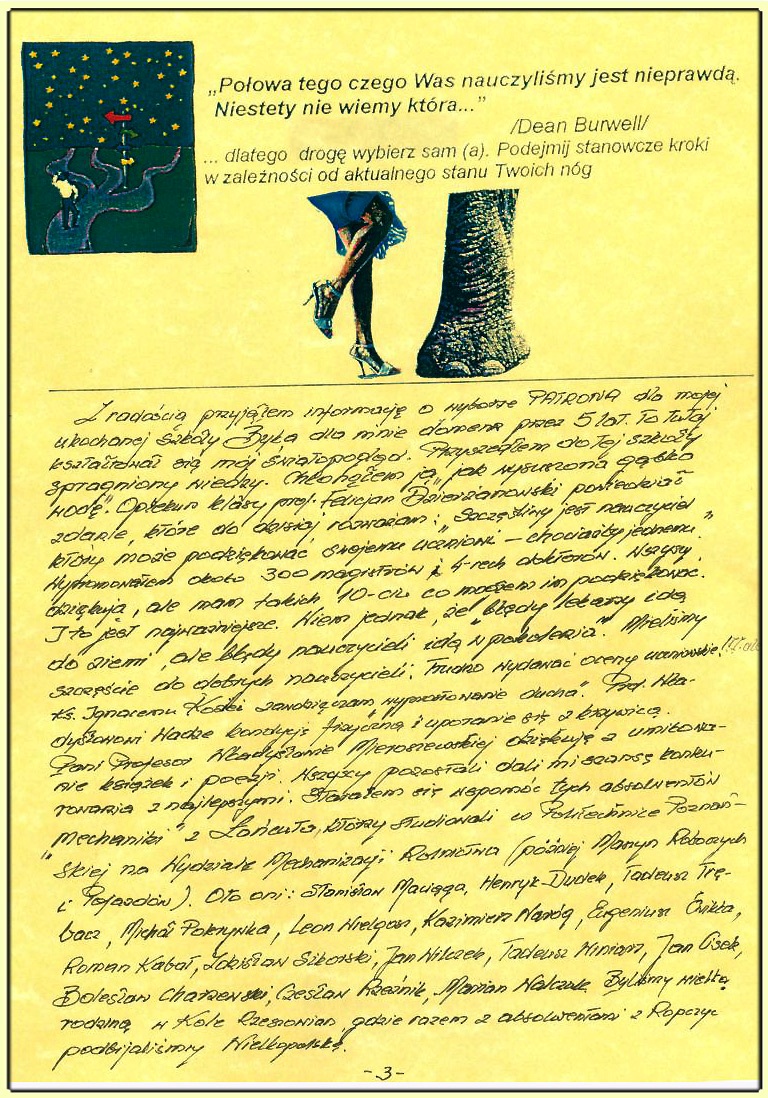 „Połowa tego czego Was nauczyliśmy jest nieprawdą.
Niestety nie wiemy która...”
/Dean Burwell/
... dlatego drogę wybierz sam (a). Podejmij stanowcze kroki
w zależności od aktualnego stanu Twoich nóg
Z radością przyjąłem informację o wyborze PATRONA dla mojej
ukochanej Szkoły Była dla mnie domem przez 5 lat. To tutaj
kształtował się mój światopogląd. Przyszedłem do tej szkoły
spragniony wiedzy. Chłonąłem ją „jak wysuszona gąbka
wodę”. Opiekun klasy prof. Felicjan Dzierżanowski powiedział
zdanie, które do dzisiaj rozważam: „Szczęśliwy jest nauczyciel
który może podziękować swojemu uczniowi – chociażby jednemu”
Wypromowałem około 300 magistrów i 4-rech doktorów. Wszyscy
dziękują, ale mam takich 10-ciu co mogłem im podziękować.
I to jest najważniejsze. Wiem jednak, że „błędy lekarzy idą
do ziemi, ale błędy nauczycieli idą w pokolenia”. Mieliśmy
szczęście do dobrych nauczycieli. Trudno wydawać oceny uczniowskie!
Ks. Ignacemu zawdzięczam „wyprostowanie ducha”. Prof. Wła-
dysławowi Hadze kondycję fizyczną i uporanie się z krzywicą.
Pani Profesor Władysławie Mieroszewskiej dziękuję za umiłowa-
nie książek i poezji. Wszyscy pozostali dali mi szansę konku-
rowania z najlepszymi. Starałem się wspomóc tych absolwentów
„Mechanika” z Łańcuta, którzy studiowali w Politechnice Poznań-
skiej na Wydziale Mechanizacji Rolnictwa (później Maszyn Roboczych
i Pojazdów). Oto oni: Stanisław Maciąga, Henryk Dudek, Tadeusz Trę-
bacz, Michał Pokrywka, Leon Wielgos, Kazimierz Naróg, Eugeniusz Ćwikła,
Roman Kabał, Zdzisław Sikorski, Jan Wilczek, Tadeusz Winiarz, Jan Cisek,
Bolesław Charzewski, Czesław Rzeźnik, Marian Walczak. Byliśmy wielką
rodziną w Kole Rzeszowian gdzie razem z absolwentami z Ropczyc
podbijaliśmy Wielkopolskę.
-3-